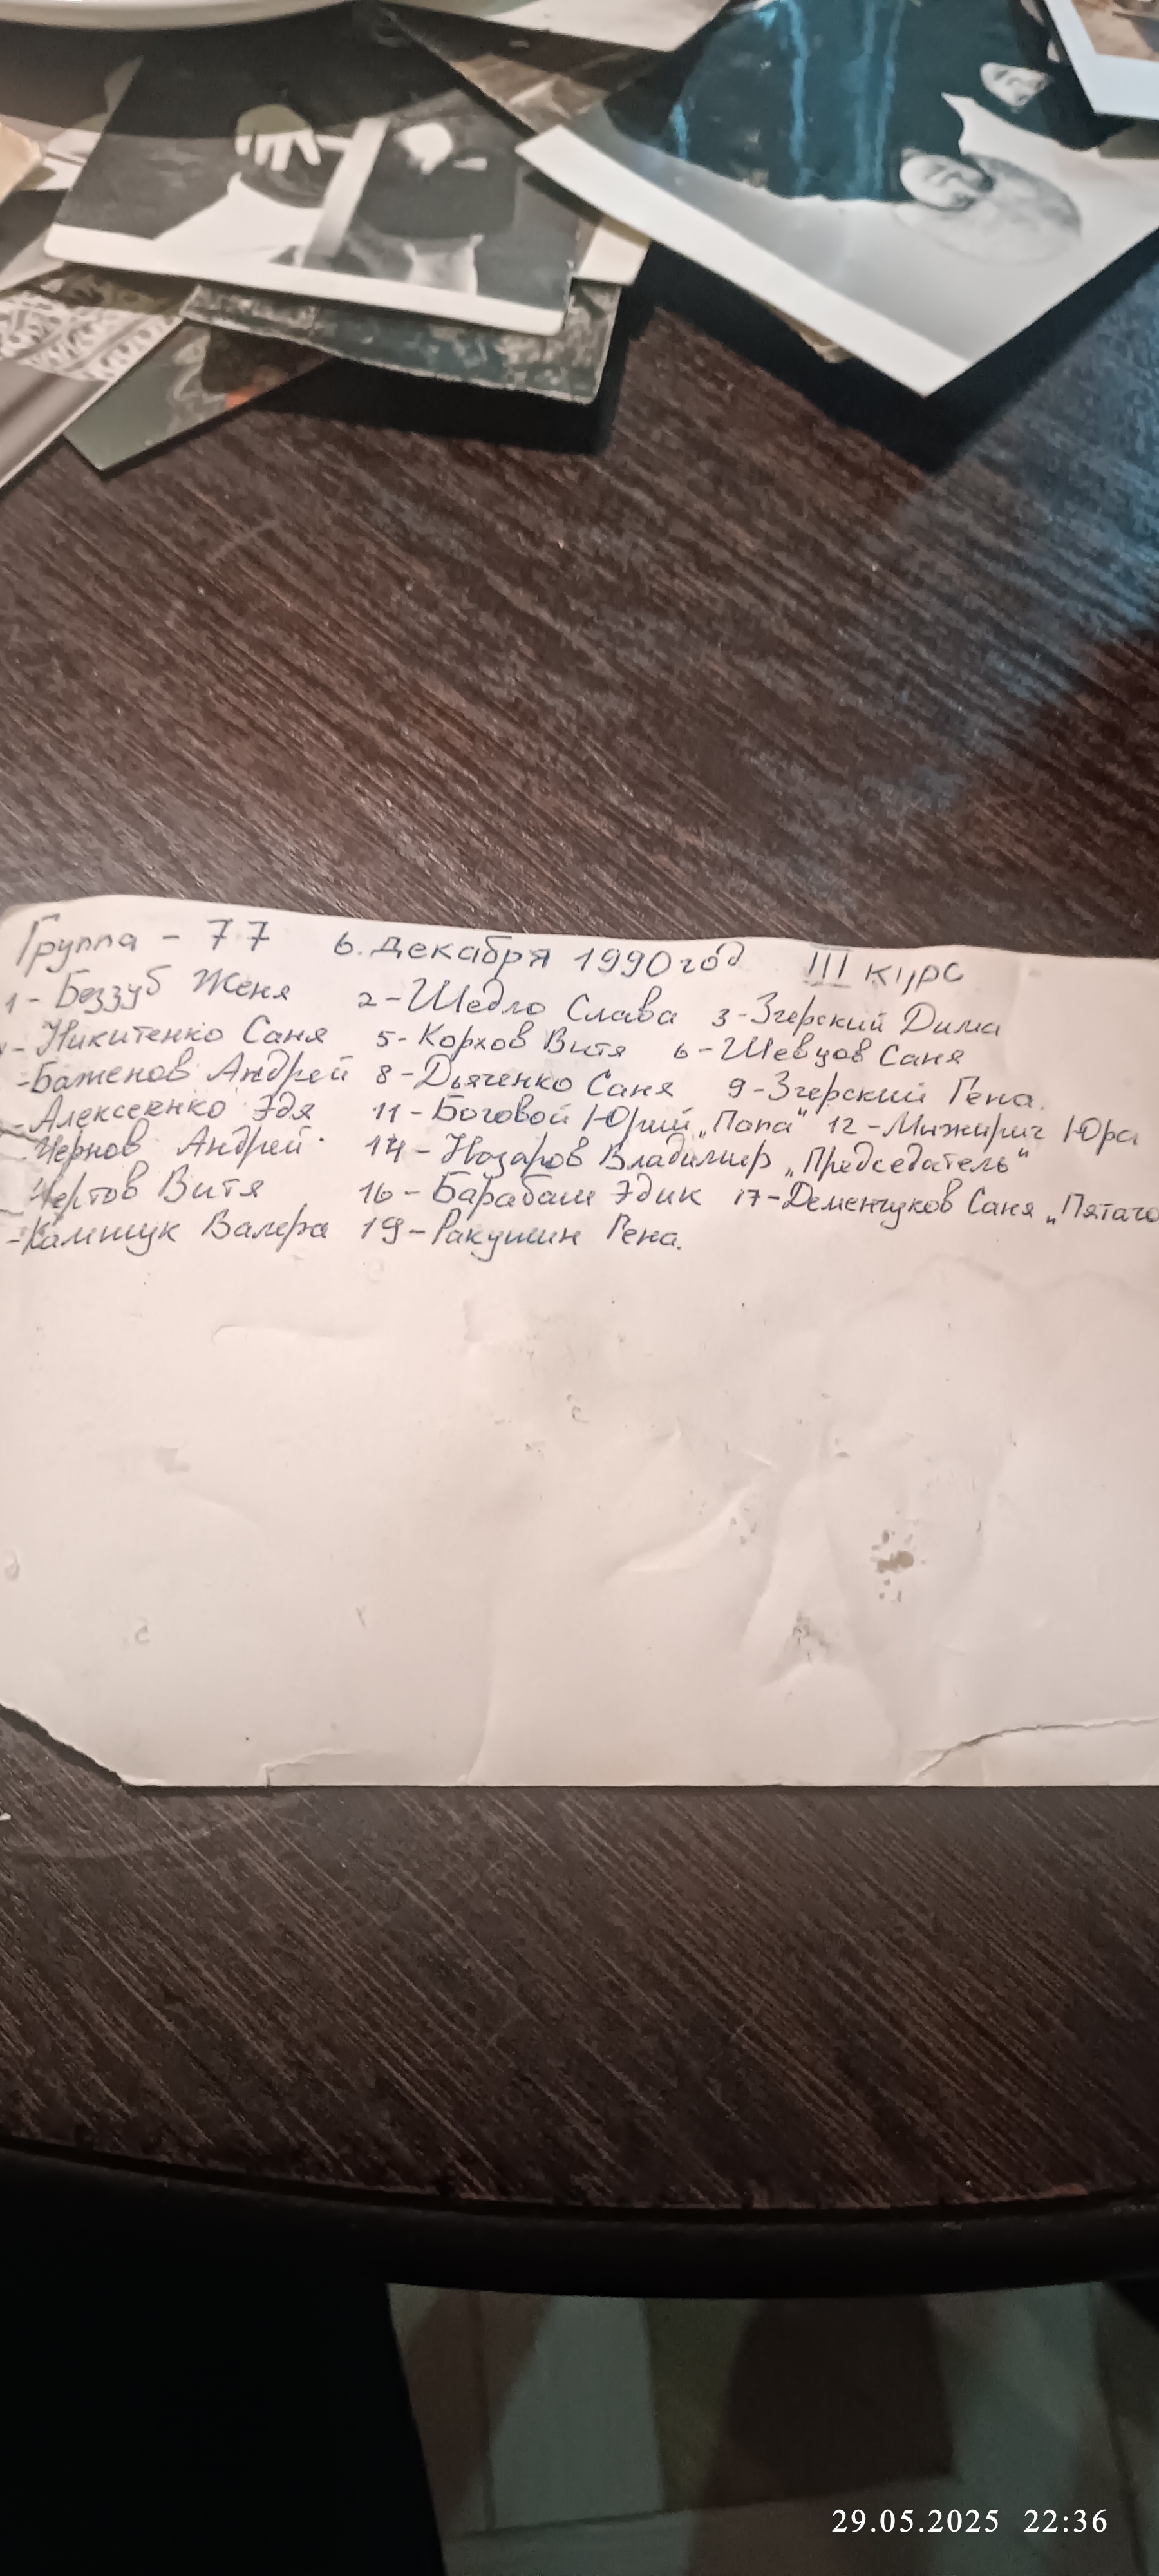 Группа - 77 6. декабря 1990 год III курс
1 - Беззуб Женя 2 - Шедло Слава 3 - Згерский Дима
- Никитенко Саня 5 - Корхов Витя 6 - Шевцов Саня
- Баженов Андрей 8 - Дьяченко Саня 9 - Згерский Гена.
- Алексеенко Эдя 11 - Боговой Юрий „Папа“ 12 - Мижирич Юра
Чернов Андрей 14 - Назаров Владимир „Председатель“
Чертов Витя 16 - Барабаш Эдик 17 - Деменчуков Саня „Пятачо
- Камшук Валера 19 - Ракушин Гена.
29.05.2025 22:36